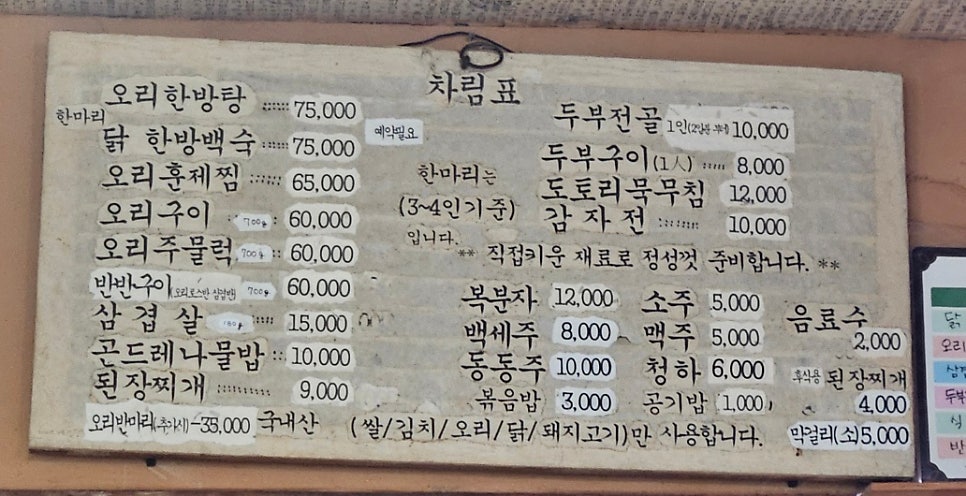 차림표
오리한방탕 75,000
한마리
닭 한방백숙 75,000
예약필요
오리훈제찜 65,000
오리구이 700g 60,000
오리주물럭 700g 60,000
반반구이(오리로스반 삼겹반) 700g 60,000
삼겹살 180g 15,000
곤드레나물밥 10,000
된장찌개 9,000
오리반마리(추가시)-35,000
한마리는
(3~4인기준)
입니다.
두부전골 1인 10,000
두부구이(1人) 8,000
도토리묵무침 12,000
감자전 10,000
** 직접키운 재료로 정성껏 준비합니다. **
복분자 12,000
백세주 8,000
동동주 10,000
볶음밥 3,000
소주 5,000
맥주 5,000
청하 6,000
공기밥 1,000
음료수
2,000
후식용 된장찌개
4,000
막걸리(소)5,000
국내산 (쌀/김치/오리/닭/돼지고기)만 사용합니다.
닭
오리
삼겹
두부
식
반